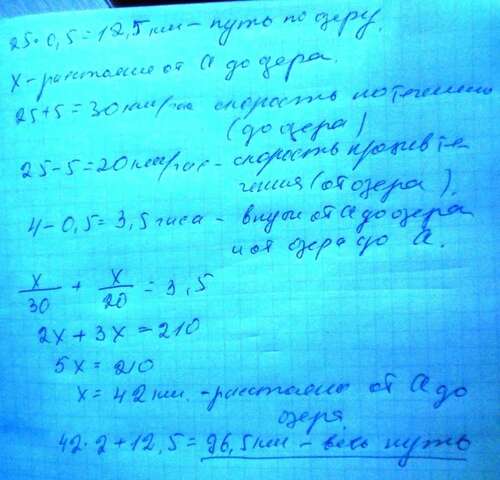 25·0,5=12,5 км – путь по озеру.
x – расстояние от А до озера.
25+5=30 км/час скорость по течению
(до озера)
25-5=20 км/час – скорость против те-
чения (от озера).
4-0,5=3,5 часа – в пути от А до озера
и от озера до А.
x/30 + x/20 = 3,5
2x+3x=210
5x=210
x=42 км. – расстояние от А до
озера.
42·2+12,5=96,5 км – весь путь